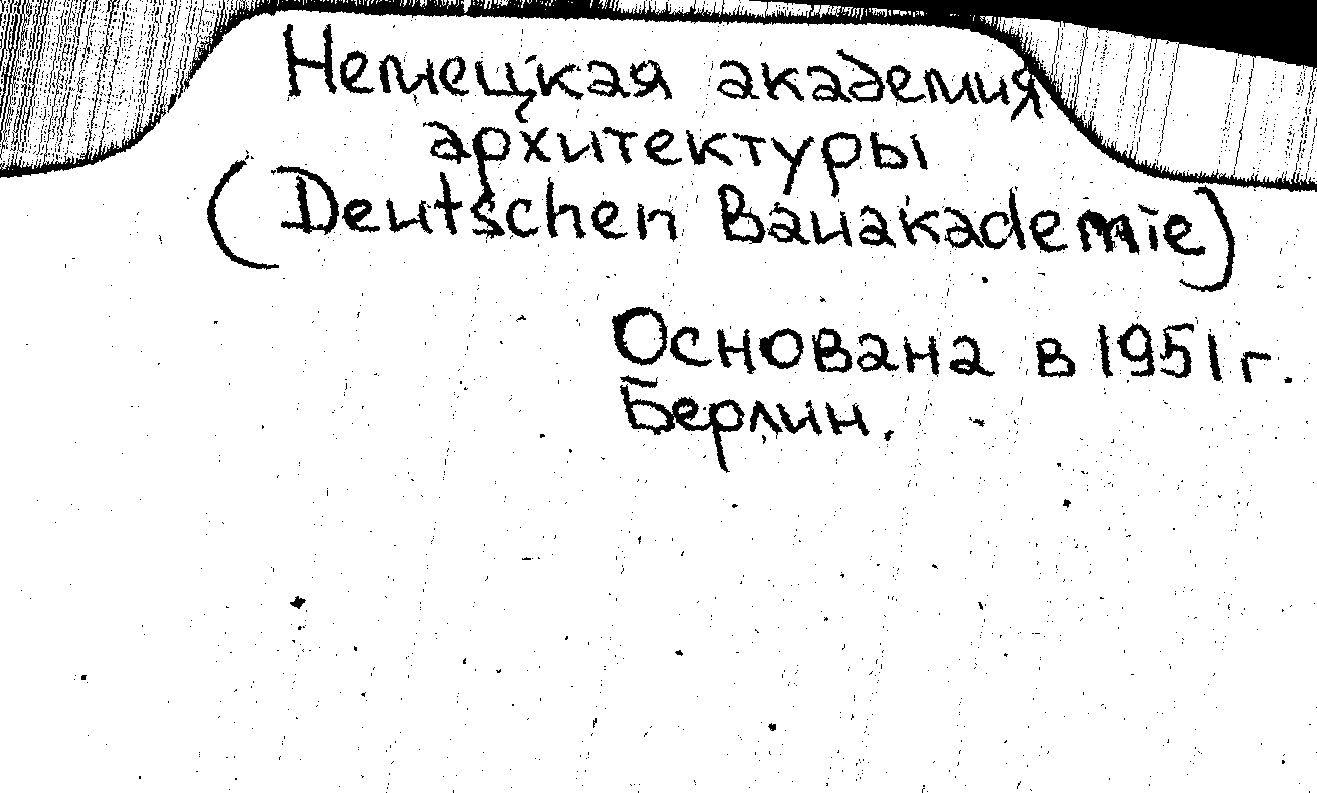 Немецкая академия
архитектуры
(Deutschen Bauakademie)
Основана в 1951 г.
Берлин.